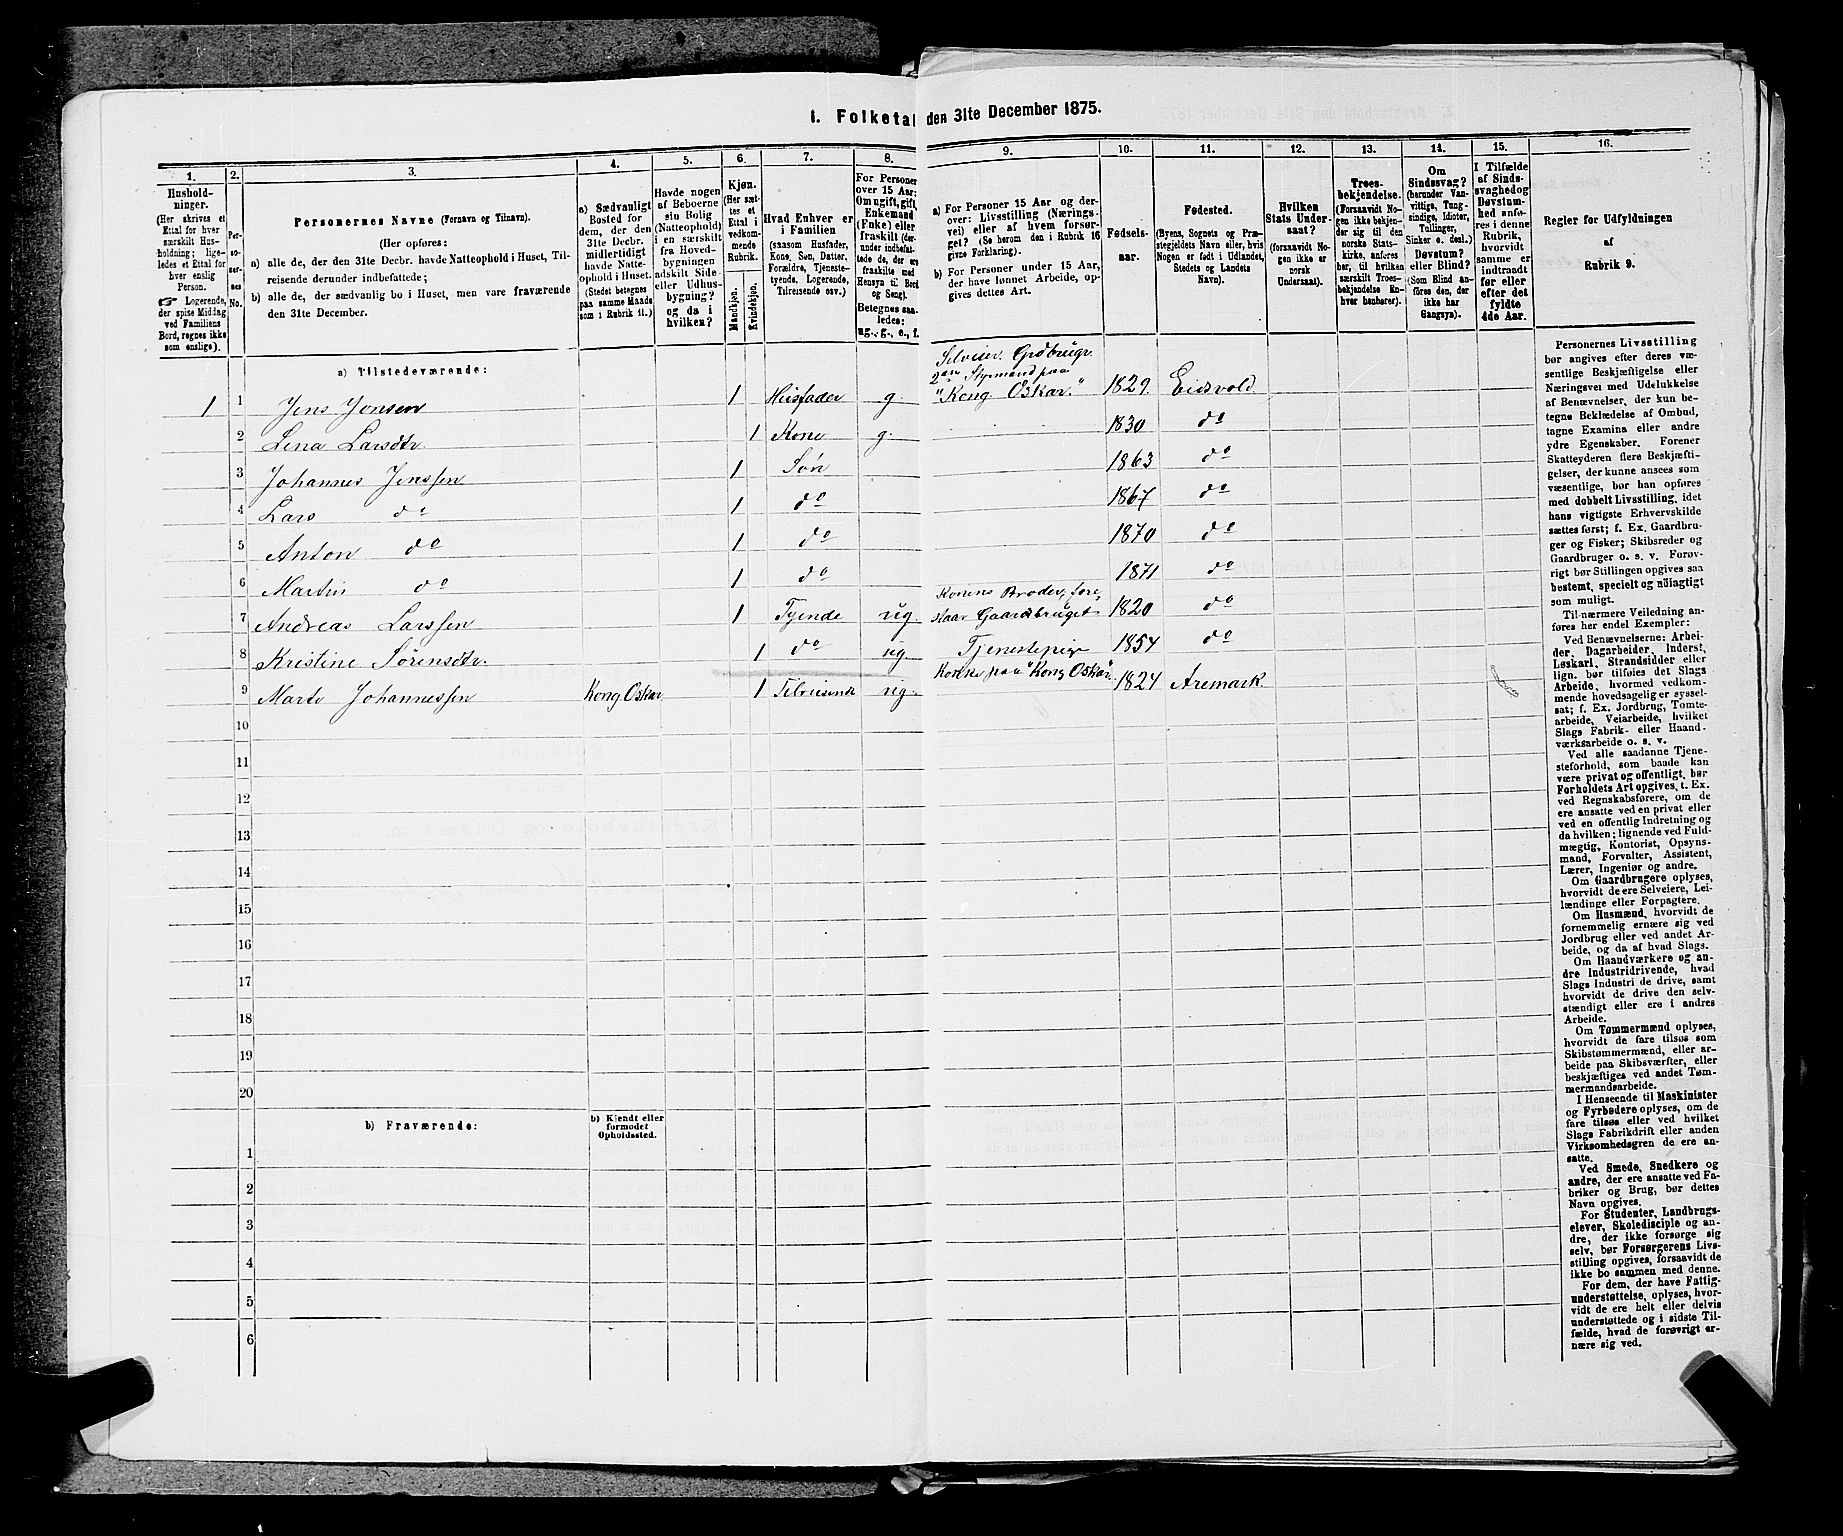 1. Folketal den 31te December 1875.
1.
Hushold-
ninger.
(Her skrives et
Ettal for hver
særskilt Hus-
holdning; lige-
ledes et Ettal for
hver enslig
Person.
☛ Logerende,
der spise Middag
ved Familiens
Bord, regnes ikke
som enslige).
2.
Per-
so-
ner-
nes
No.
3.
Personernes Navne (Fornavn og Tilnavn).
(Her opføres:
a) alle de, der den 31te Decbr. havde Natteophold i Huset, Til-
reisende derunder indbefattede;
b) alle de, der sædvanlig bo i Huset, men vare fraværende
den 31te December.
4.
a) Sædvanligt
Bosted for
dem, der den
31te Decbr.
midlertidigt
havde Natte-
ophold i Huset.
(Stedet betegnes
paa samme Maade
som i Rubrik 11.)
5.
Havde nogen
af Beboerne
sin Bolig
(Natteophold)
i en særskilt
fra Hoved-
bygningen
adskilt Side-
eller Udhus-
bygning?
og da i
hvilken?
6.
Kjøn.
(Her sæt-
tes et
Ettal i
vedkom-
mende
Rubrik.
Mandkjøn.
Kvindekjøn.
7.
Hvad Enhver er
i Familien
(saasom Husfader,
Kone, Søn, Datter,
Forældre, Tjeneste-
tyende, Logerende,
Tilreisende osv.)
8.
For Personer
over 15 Aar:
Om ugift, gift,
Enkemand
(Enke) eller
fraskilt (der-
under indbefat-
tede de, der ere
fraskilte med
Hensyn til Bord
og Seng).
Betegnes saa-
ledes:
ug., g., e., f.
9.
a) For Personer 15 Aar og der-
over: Livsstilling (Nærings-
vei) eller af hvem forsør-
get? (Se herom den i Rubrik 16
givne Forklaring).
b) For Personer under 15 Aar,
der have lønnet Arbeide, op-
gives dettes Art.
10.
Fødsels-
aar.
11.
Fødested.
(Byens, Sognets og Præ-
stegjeldets Navn eller, hvis
Nogen er født i Udlandet,
Stedets og Landets
Navn).
12.
Hvilken
Stats Under-
saat?
(forsaavidt No-
gen ikke er
norsk
Undersaat).
13.
Troes-
bekjendelse.
(Forsaavidt No-
gen ikke bekjen-
der sig til den
norske Stats-
kirke, anføres
her, til hvilken
særskilt Troes-
bekjendelse En-
hver henhører).
14.
Om
Sindssvag?
(herunder Van-
vittige, Tung-
sindige, Idioter,
Tullinger,
Sinker o. desl.)
Døvstum?
eller Blind?
(Som Blind an-
føres den, der
ikke har
Gangsyn).
15.
I Tilfælde
af Sinds-
svaghed og
Døvstum-
hed anfø-
res i denne
Rubrik,
hvorvidt
samme er
indtraadt
før eller
efter det
fyldte
4de Aar.
16.
Regler for Udfyldningen
af
Rubrik 9.
a) Tilstedeværende:
Selveier. Grdbruger
2den Styrmand paa
1 1 Jens Jensen 1 Husfader g. "Kong Oskar." 1829. Eidsvold.
2 Lena Larsdtr 1 Kone g. 1830 do
3 Johannes Jenssen 1 Søn 1863 do
4 Lars do 1 do 1867 do
5 Anton do 1 do 1870 do
6 Martin do 1 do 1871 do
Konens Broder, fore-
7 Andreas Larssen 1 Tyende ug. staar Gaardbruget 1820 do
8 Kristine Sørensdtr. 1 do ug Tjenestepige 1854 do
9 Marte Johannessen Kong Oskar 1 Tilreisende ug. Kokke paa "Kong Oskar". 1824 Aremark.
10
11
12
13
14
15
16
17
18
19
20
b) Fraværende:
b) Kjendt eller
formodet
Opholdssted.
1
2
3
4
5
6
Personernes Livsstilling
bør angives efter deres væ-
sentlige Beskjæftigelse eller
Næringsvei med Udelukkelse
af Benævnelser, der kun be-
tegne Beklædelse af Ombud,
tagne Examina eller andre
ydre Egenskaber. Forener
Skatteyderen flere Beskjæfti-
gelser, der kunne ansees som
væsentlige, bør han opføres
med dobbelt Livsstilling, idet
hans vigtigste Erhvervskilde
sættes først; f. Ex. Gaardbru-
ger og Fisker; Skibsreder og
Gaardbruger o. s. v. Forøv-
rigt bør Stillingen opgives saa
bestemt, specielt og nøiagtigt
som muligt.
Til nærmere Veiledning an-
føres her endel Exempler:
Ved Benævnelserne: Arbei-
der, Dagarbeider, Inderst,
Løskarl, Strandsidder eller
lign. bør tilføies det Slags
Arbeide, hvormed vedkom-
mende hovedsagelig er syssel-
sat; f. Ex. Jordbrug, Tomte-
arbeide, Veiarbeide, hvilket
Slags Fabrik- eller Haand-
værksarbeide o. s. v.
Ved alle saadanne Tjene-
steforhold, som baade kan
være privat og offentligt, bør
Forholdets Art opgives, t. Ex.
ved Regnskabsførere, om de
ere ansatte ved en privat eller
ved en offentlig Indretning og
da hvilken; lignende ved Fuld-
mægtig, Kontorist, Opsyns-
mand, Forvalter, Assistent,
Lærer, Ingeniør og andre.
Om Gaardbrugere oplyses,
hvorvidt de ere Selveiere, Lei-
lændinge eller Forpagtere.
Om Husmænd, hvorvidt de
fornemmelig ernære sig ved
Jordbrug eller ved andet Ar-
beide, og da af hvad Slags.
Om Haandværkere og an-
dre Industridrivende, hvad
Slags Industri de drive, samt
hvorvidt de drive den selv-
stændigt eller ere i andres
Arbeide.
Om Tømmermænd oplyses,
hvorvidt de fare tilsøs som
Skibstømmermænd, eller ar-
beide paa Skibsværfter, eller
beskjæftiges ved andet Tøm-
mermandsarbeide.
I Henseende til Maskinister
og Fyrbødere oplyses, om de
fare tilsøs eller ved hvilket
Slags Fabrikdrift eller anden
Virksomhedsgren de ere an-
satte.
Ved Smede, Snedkere og
andre, der ere ansatte ved Fa-
briker og Brug, bør dettes
Navn opgives.
For Studenter, Landbrugs-
elever, Skoledisciple og an-
dre, der ikke forsørge sig
selv, bør Forsørgerens Livs-
stilling opgives, forsaavidt de
ikke bo sammen med denne.
For dem, der have Fattig-
understøttelse, oplyses, hvor-
vidt de ere helt eller delvis
understøttede og i sidste Til-
fælde, hvad de forøvrigt er-
nære sig ved.